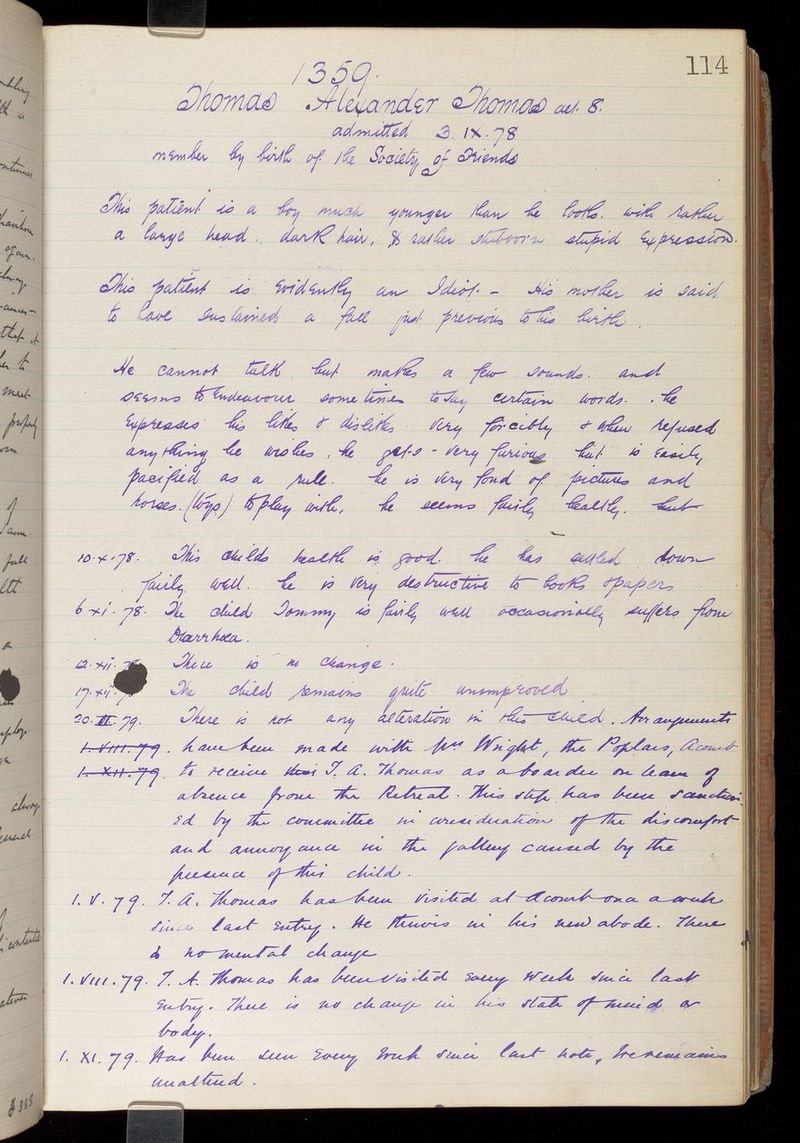 114
1359.
Thomas Alexander Thomas aet. 8.
admitted 3.IX.78
member by birth of the Society of Friends
This patient is a boy much younger than he looks. with rather
a large head. dark hair, & rather stubborn stupid expression.
This patient is evidently an Idiot. – His mother is said
to have sustained a fall just previous to his birth.
He cannot talk but makes a few sounds. and
seems to endeavour sometimes to say certain words. he
expresses his likes & dislikes very forcibly & when refused
anything he wishes, he gets very furious but is easily
pacified as a rule. he is very fond of pictures and
horses. (toys) to play with. he seems fairly healthy. but
10.X.78. This childs health is good. he has settled down
fairly well. he is very destructive to books & papers
6.XI.78. The child Tommy is fairly well occasionally suffers from
Diarrhoea.
12.XII. There is no change.
17.XII. The child remains quite unimproved
20. .79. There is not any alteration in this child. Arrangements
1.VIII.79. have been made with Mrs Wright, the Poplars, Acomb
1.XII.79. to receive T. A. Thomas as a boarder on leave of
absence from the Retreat. This step has been sanction-
ed by the committee in consideration of the discomfort
and annoyance in the gallery caused by the
presence of this child.
1.V.79. T. A. Thomas has been visited at Acomb once a week
since last entry. He thrives in his new abode. There
is no mental change
1.VIII.79. T. A. Thomas has been visited every week since last
entry. There is no change in his state of mind or
body.
1.XI.79. Has been seen every week since last note, he remains
unaltered.